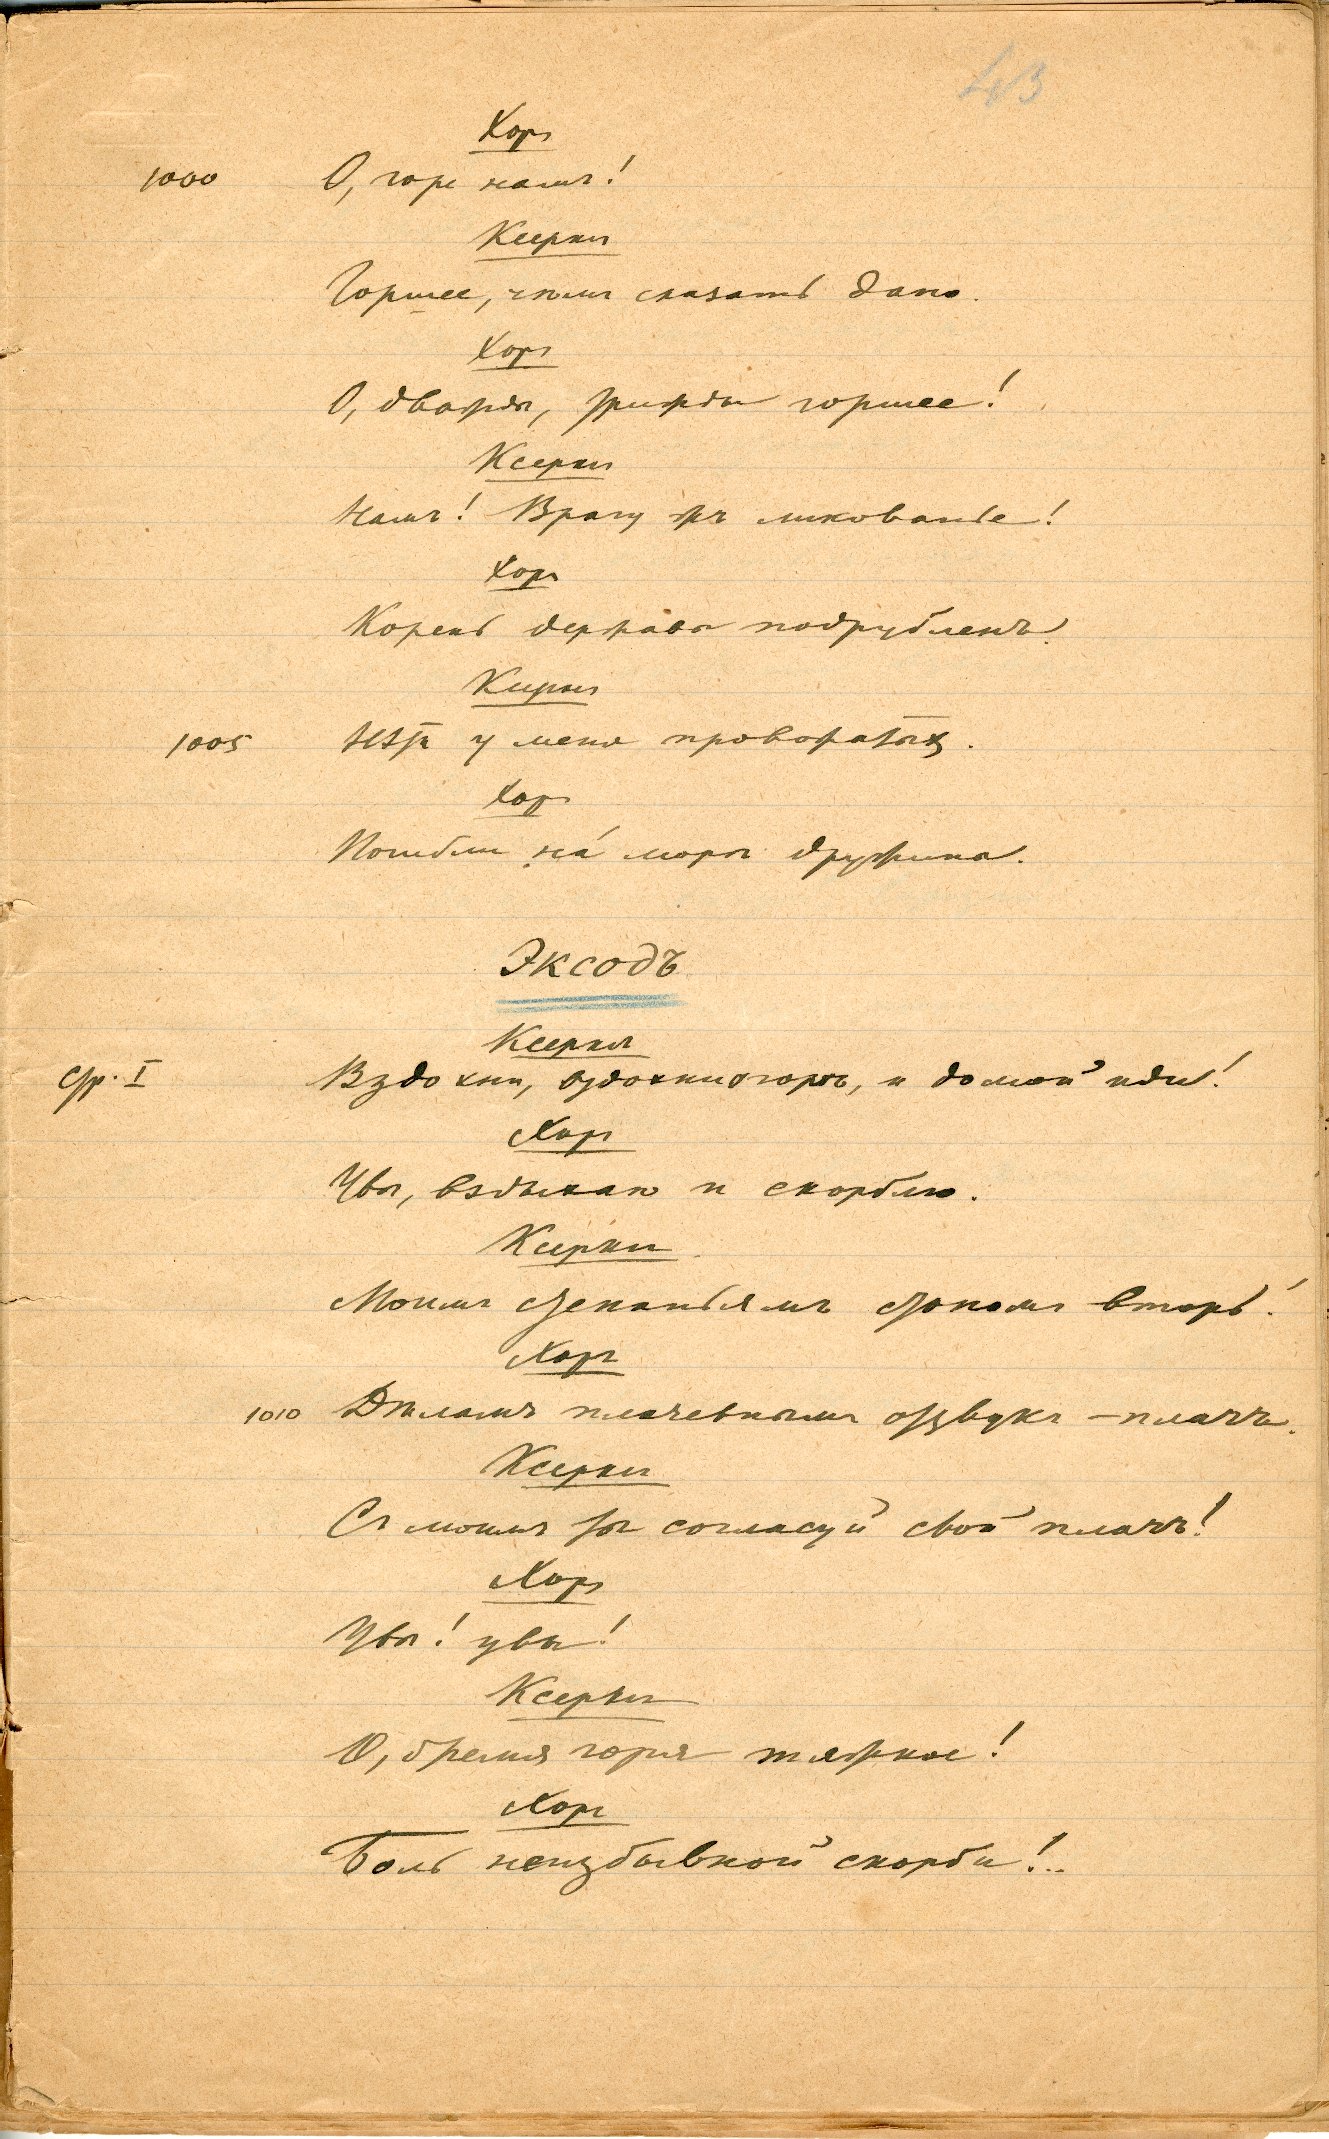 43
Хоръ
1000 О, горе намъ!
Ксерксъ
Горшее, чѣмъ сказать дано.
Хоръ
О, дважды, трижды горшее!
Ксерксъ
Намъ! Врагу жъ ликованье!
Хоръ
Корень державы подрубленъ.
Ксерксъ
1005 Нѣтъ у меня провожатыхъ.
Хоръ
Погибли на́ морѣ дружины.
Эксодъ
Ксерксъ
Стр. I Вздохни, вздохни о горѣ, и домой иди!
Хоръ
Увы, вздыхаю и скорблю.
Ксерксъ
Моимъ стенаньямъ стономъ вторь!
Хоръ
1010 Дѣламъ плачевнымъ отзвукъ – плачъ.
Ксерксъ
Съ моимъ ты согласуй свой плачъ!
Хоръ
Увы! увы!
Ксерксъ
О, бремя горя тяжкое!
Хоръ
Боль неизбывной скорби!..